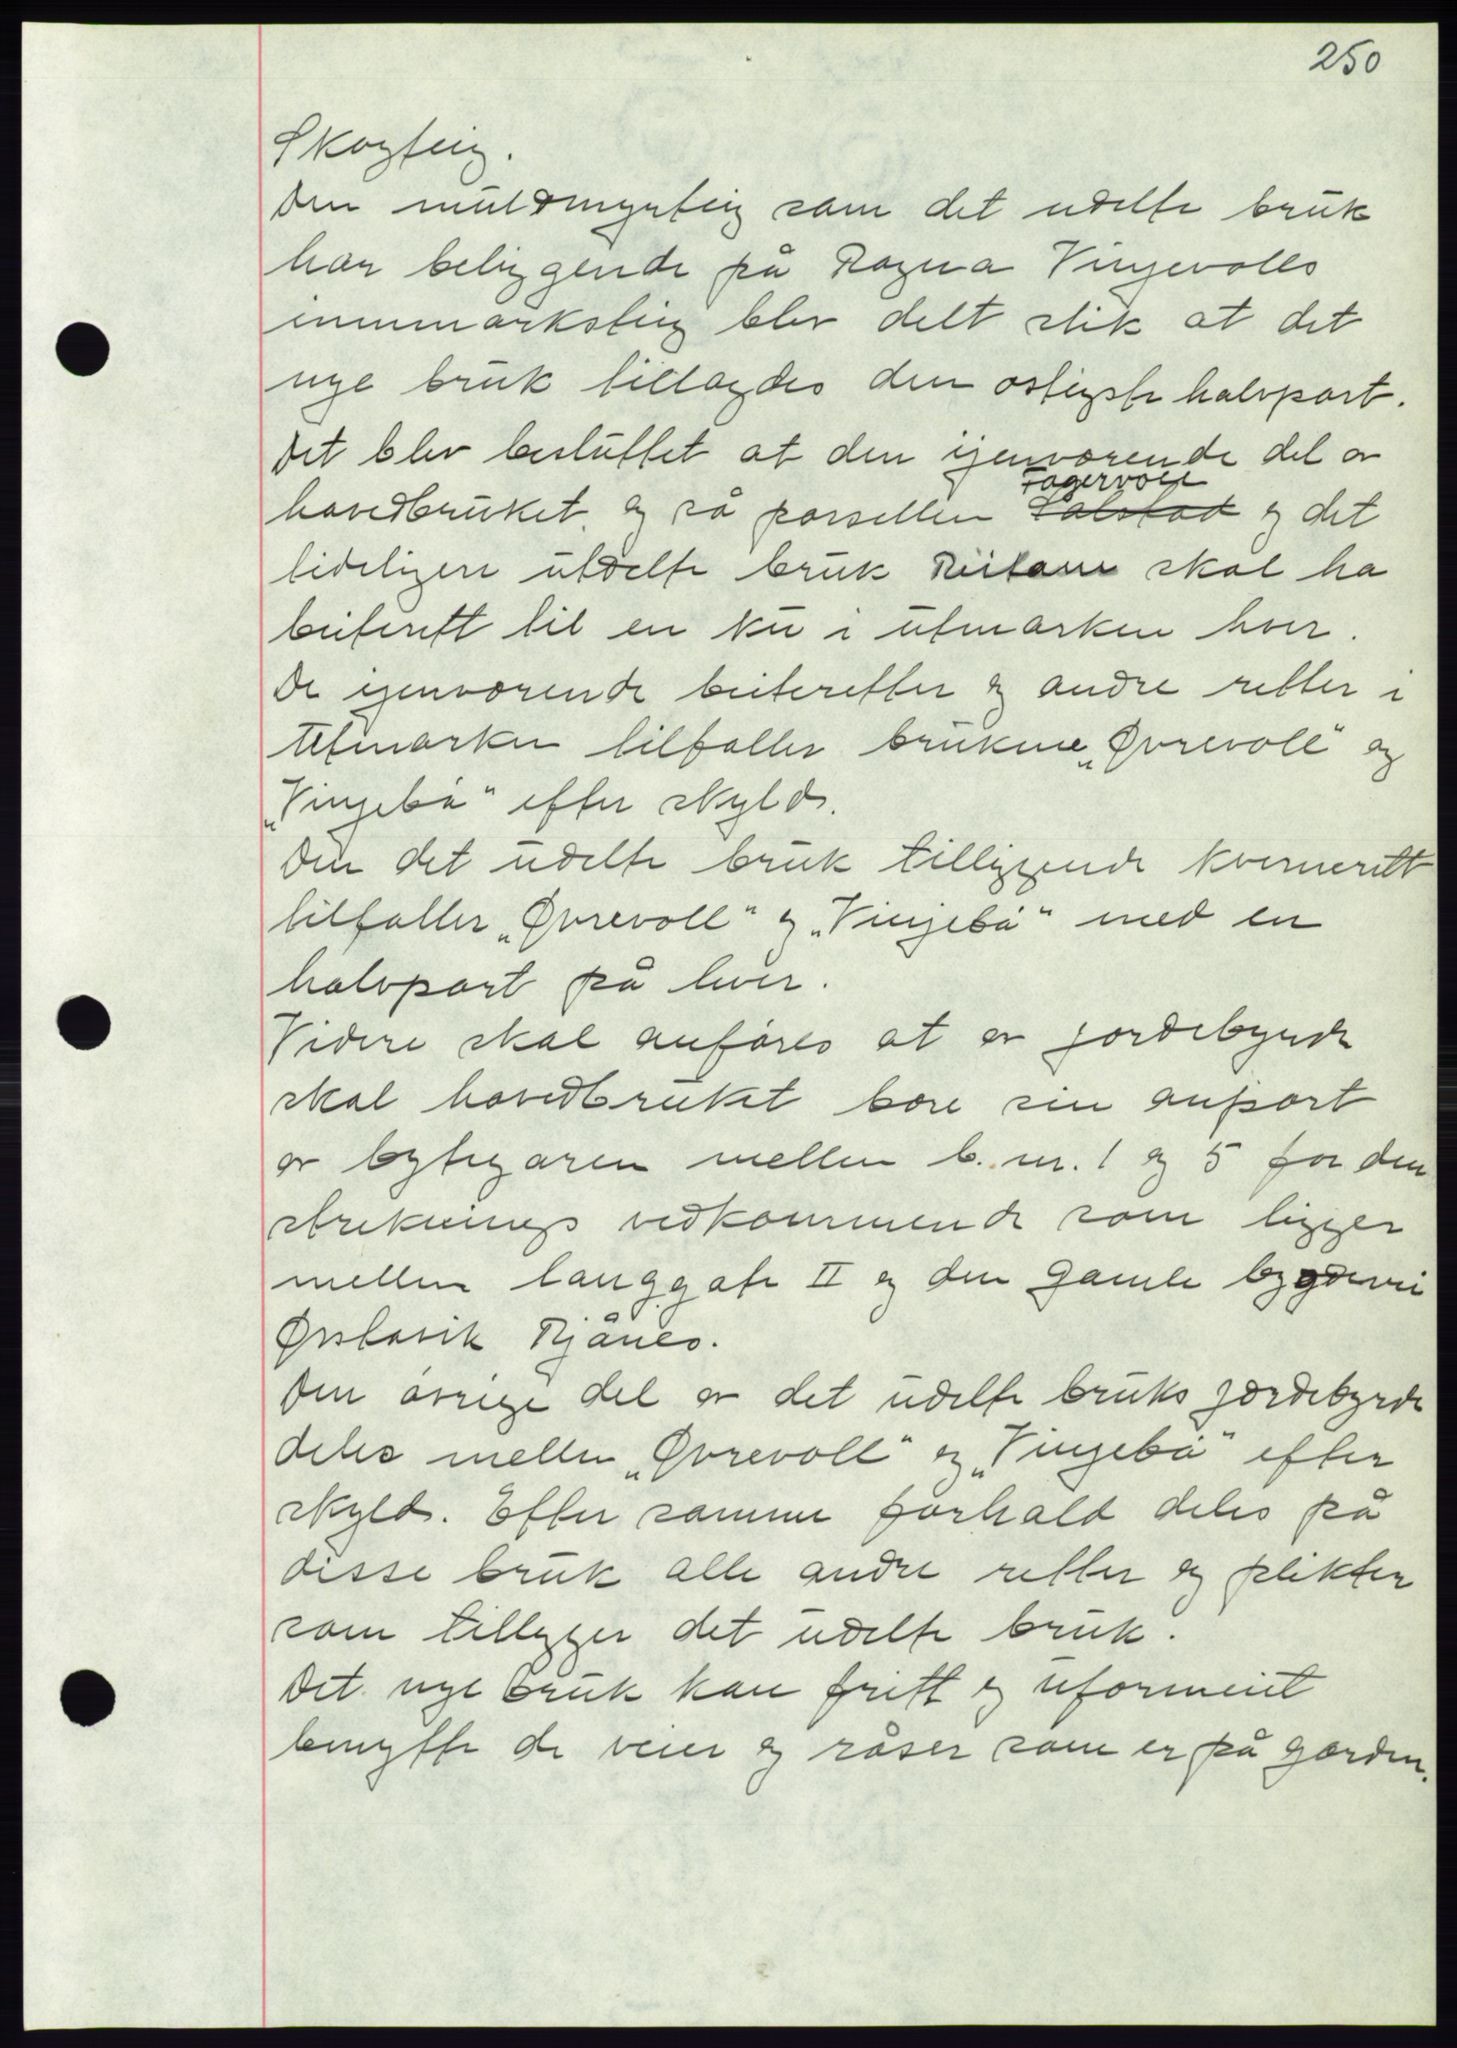 250
Skogteig.
Den muldmyrteig som det udelte bruk
har beliggende på Ragna Vinjevolls
innmarksteig blev delt slik at det
nye bruk tillagdes den østligste halvpart.
Det blev besluttet at den gjenværende del av
Fagervoll
hovedbruket og så parsellen Salstad og det
tideligere utdelte bruk Reitane skal ha
beiterett til en ku i utmarken hver.
De gjenværende beiteretter og andre retter i
utmarken tilfaller brukene „Øvrevoll" og
„Vinjebø" efter skyld.
Den det udelte bruk tilliggende kvernerett
tilfaller „Øvrevoll" og „Vinjebø" med en
halvpart på hver.
Videre skal anføres at av jordebyrde
skal hovedbruket bære sin anpart
av bytegaren mellem b. nr. 1 og 5 for den
streknings vedkommende som ligger
mellem langgate II og den gamle bygdevei
Ørstavik Rjånes.
Den øvrige del av det udelte bruks jordebyrde
deles mellem „Øvrevoll" og „Vinjebø" efter
skyld. Efter samme forhold deles på
disse bruk alle andre retter og plikter
som tilligger det udelte bruk.
Det nye bruk kan fritt og uforment
benytte de veier og råser som er på garden.